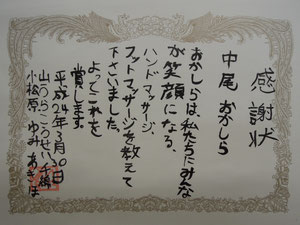 感謝状
中尾 おかしら
おかしらは、私たちにみんな
が笑顔になる、
ハンドマッサージ、
フットマッサージを教えて
下さいました。
よってこれを
賞します。
平成24年3月30日
小松原 ゆみ あきほ